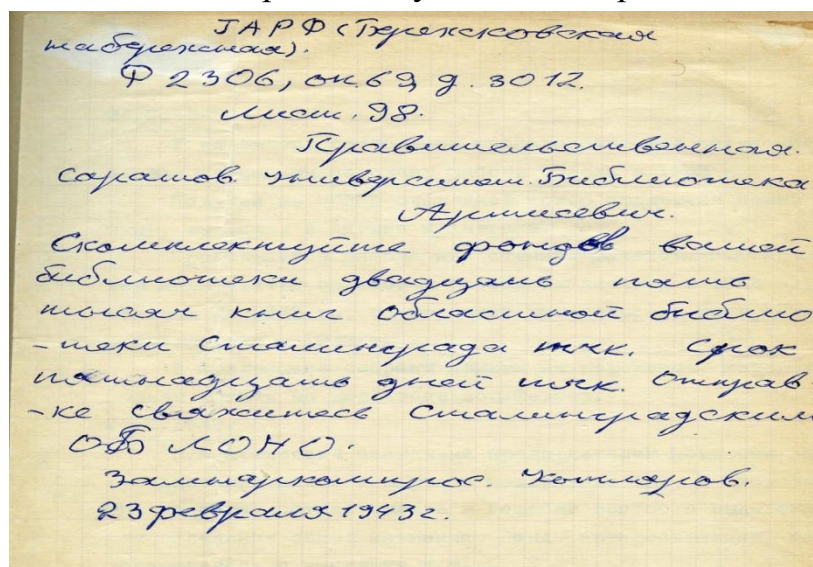 ГАРФ (Бережковская
набережная).
Ф 2306, оп. 69, д. 3012.
Лист. 98.
Правительственная.
Саратов. Университет. Библиотека
Артисевич.
Скомплектуйте фондов вашей
библиотеки двадцать пять
тысяч книг областной библио
-теки Сталинграда тчк. Срок
пятнадцать дней тчк. Отправ-
-ке свяжитесь Сталинградским
ОБЛОНО.
Замнаркомпрос.
23 февраля 1943 г.